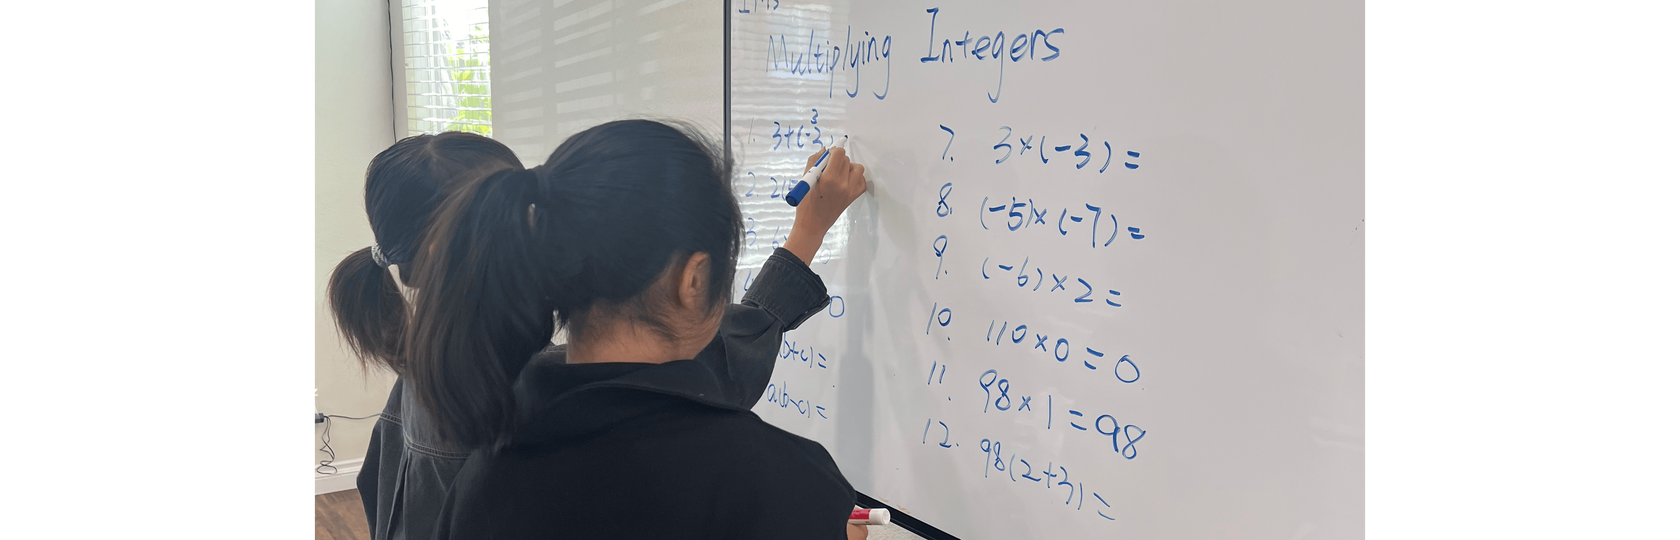 Multiplying Integers
1. 3+(-3
2. 2(
3.
0
(b+c)=
a(b-c)=
7. 3×(-3)=
8. (-5)×(-7)=
9. (-6)×2=
10. 110×0=0
11. 98×1=98
12. 98(2+3)=